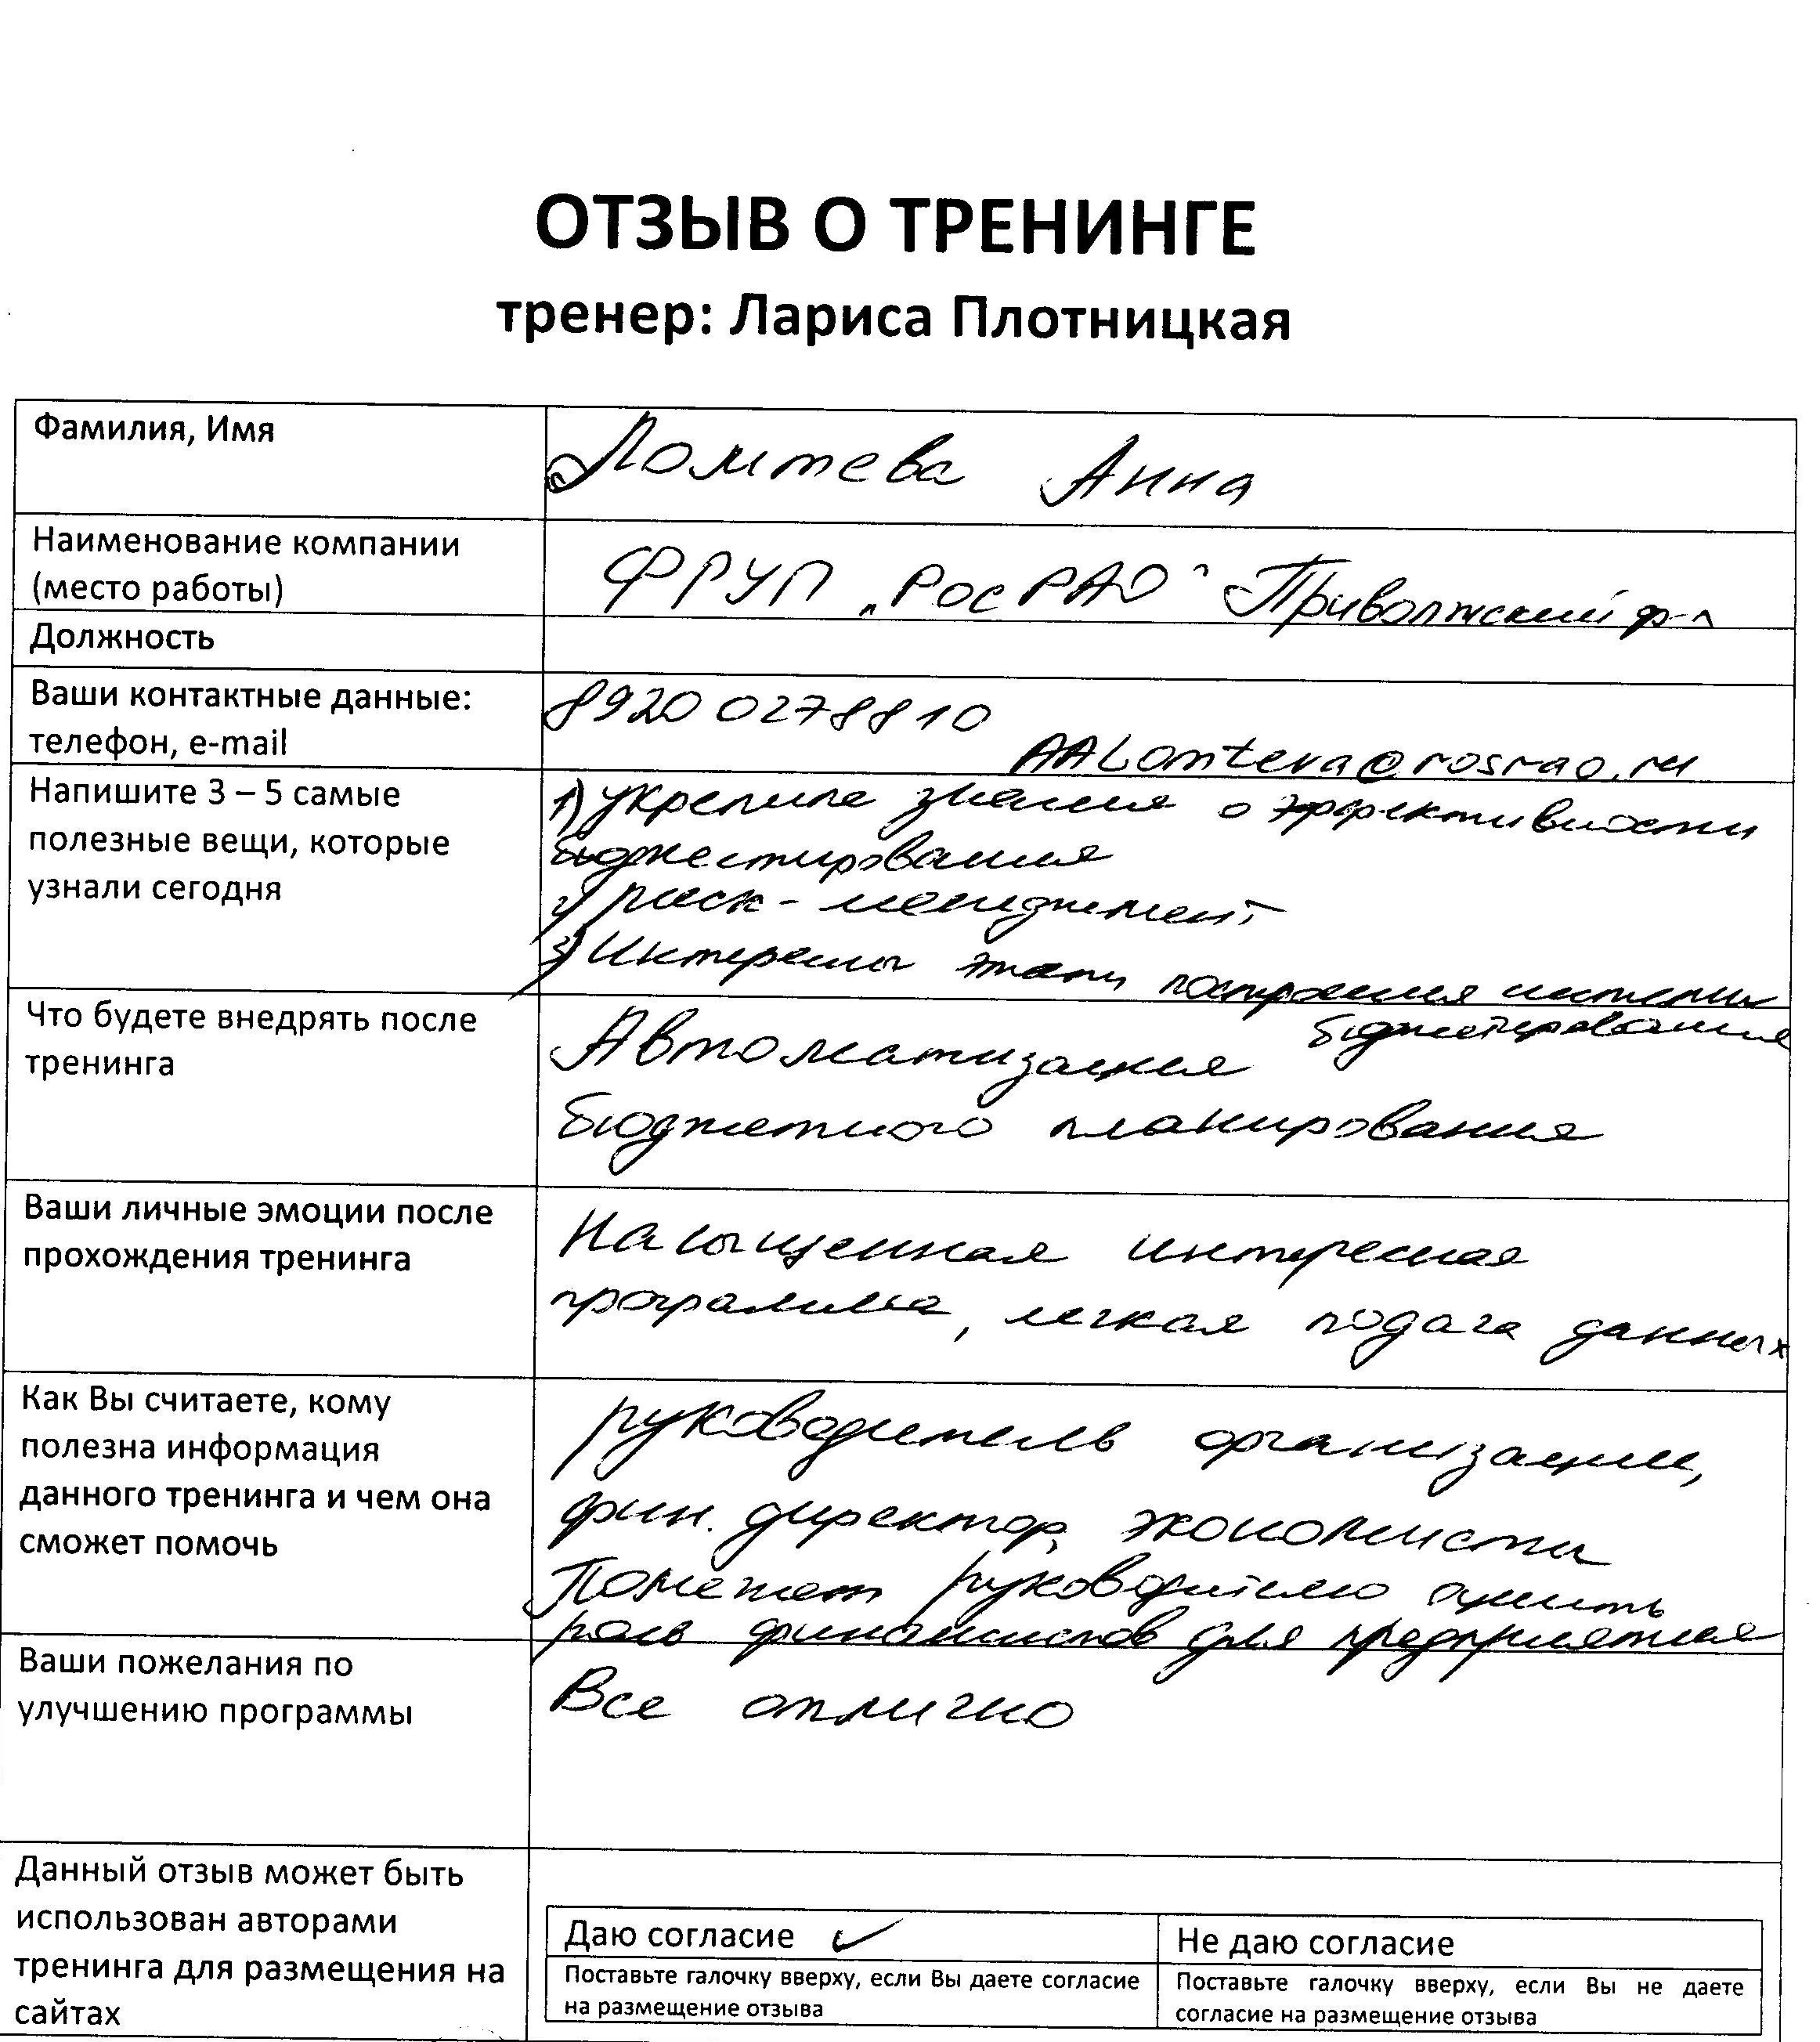 ОТЗЫВ О ТРЕНИНГЕ
тренер: Лариса Плотницкая
Фамилия, Имя
Ломтева Анна
Наименование компании
(место работы)
ФГУП "РосРАО" Приволжский ф-л
Должность
Ваши контактные данные:
телефон, e-mail
8920 0278810
AALomteva@rosrao.ru
Напишите 3 – 5 самые
полезные вещи, которые
узнали сегодня
1) укрепила знания о эффективности
бюджетирования
2) риск-менеджмент
3) Интересны этапы построения
бюджетирования
Что будете внедрять после
тренинга
Автоматизация
бюджетного планирования
Ваши личные эмоции после
прохождения тренинга
Насыщенная интересная
программа, легкая подача данных
Как Вы считаете, кому
полезна информация
данного тренинга и чем она
сможет помочь
руководитель организации,
фин. директор, экономисты
Поможет руководителю оценить
роль финансистов для предприятия
Ваши пожелания по
улучшению программы
Все отлично
Данный отзыв может быть
использован авторами
тренинга для размещения на
сайтах
Даю согласие ✓
Поставьте галочку вверху, если Вы даете согласие
на размещение отзыва
Не даю согласие
Поставьте галочку вверху, если Вы не даете
согласие на размещение отзыва